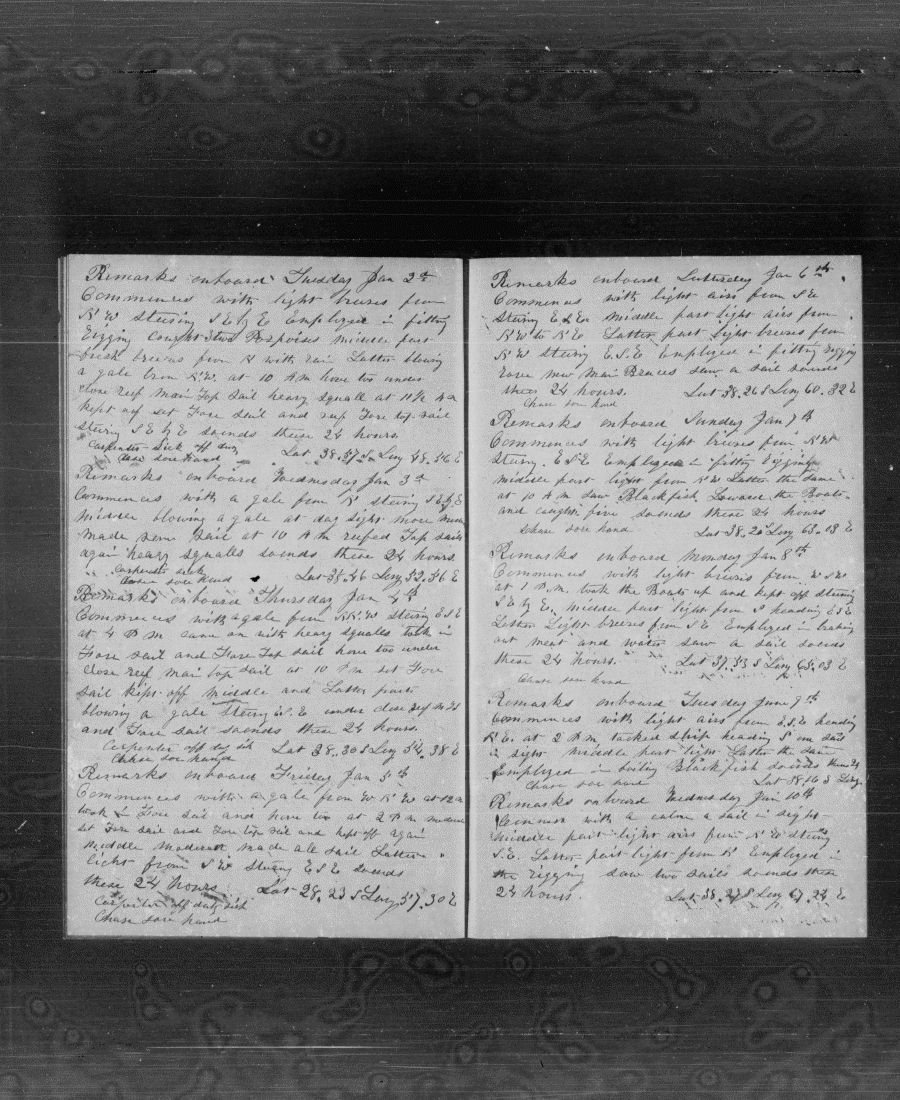 Remarks onboard Tusday Jan 2d
Commences with light breises from
N W Stering S E by E Employed in fitting
Rigging Caught two Porpoises middle part
fresh breeses from N with rain Latter blowing
a gale from N.W. at 10 A m hove too under
close reef main Top Sail heavy squall at 11½
kept off set Fore Sail and reef Fore top sail
Stering S E by E so ends these 24 hours.
Carpenter Sick off duty
Chase sore hand Lat 38.57 S Long 48.46 E
Remarks onboard Wednesday Jan 3d
Commences with a gale from N stering S E by E
Middle blowing a gale at day light more
made sern Sail at 10 A m reefed Top Sails
again heavy squales so ends these 24 hours.
Carpenter sick
Chase sore hand Lat 38.46 Long 52.46 E
Remarks onboard Thursday Jan 4th
Commences with a gale from N.N.W Stering E S E
at 4 P m came on with heavy squales took in
Fore Sail and Fore Top Sail hove too under
Close reef main top sail at 10 P m set Fore
Sail kept off middle and Latter parts
blowing a gale Stering E.S.E. under close reef
and Fore sail so ends these 24 hours.
Carpenter off duty sick Lat 38.30 S Long 54.38 E
Chase sore hand
Remarks onboard Friday Jan 5th
Commences with a gale from W N W at 12 m
took in Fore Sail and hove too at 2 P m
set Fore Sail and Fore top Sail and kept off again
Middle moderate made all Sail Latter
light from S W Stering E S E So ends
these 24 hours Lat 28.23 S Long 57.30 E
Carpenter off duty sick
Chase sore hand
Remarks onboard Saturday Jan 6th
Commences with light airs from S E
Stering middle part light airs from
N W to N E Latter part light breises from
N W Stering E.S.E Employed in fitting rigging
new main Braces saw a sail so ends
these 24 hours. Lat 38.26 S Long 60.32 E
Chase sore hand
Remarks onboard Sunday Jan 7th
Commences with light breises from N W
Stering E S E Employed in fitting Rigging
middle part light from N W Latter the same
at 10 A m saw Blackfish Lowered the Boats
and caught five so ends these 24 hours
Chase sore hand Lat 38.20 Long 63.03 E
Remarks onboard Monday Jan 8th
Commences with light breises from W S W
at 1 P.m. took the Boats up and kept off stering
S E by E. middle part light from S heading E S E
Latter Light breeses from S E Employed in braking
out meat and water saw a sail so ends
these 24 hours. Lat 37.53 S Long 65.03 E
Chase sore hand
Remarks onboard Tuesday Jan 9th
Commences with light airs from E.S.E heading
N E. at 2 P m tacked Ship heading S one sail
in sight middle part light Latter the same
Employed in boiling Blackfish so ends these 24
Chase sore hand Lat 38.16 S Long
Remarks onboard Wednesday Jan 10th
Commences with a calm a sail in sight
middle part light airs from N W stering
S.E. Latter part light from N Employed in
the rigging saw two sails so ends these
24 hours. Lat 38.27 S Long 67.22 E